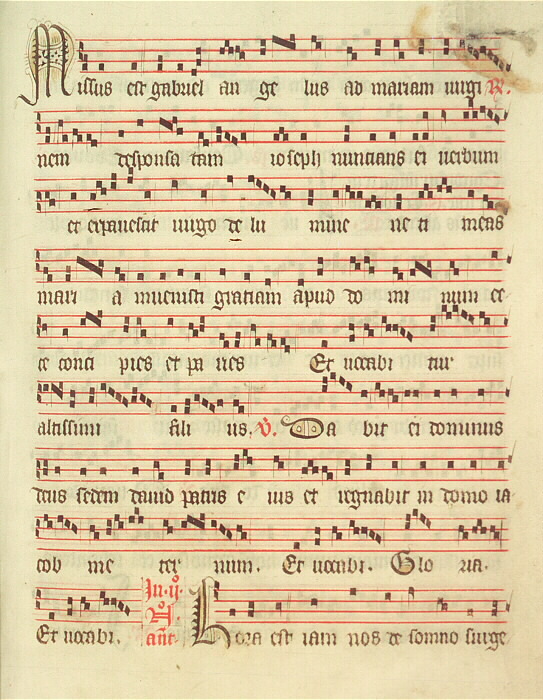 Missus est gabriel an ge lus ad mariam uirgi R.
nem desponsa tam ioseph nuntians ei uerbum
et expauescit uirgo de lu mine ne ti meas
mari a inuenisti gratiam apud do mi num ec
ce conci pies et pa ries Et uocabi tur
altissimi fili us. V. Da bit ei dominus
deus sedem dauid patris e ius et regnabit in domo ia
cob in e ter num. Et uocabi. Glo ria.
Et uocabi. In .ij. N. añt. Hora est iam nos de somno surge